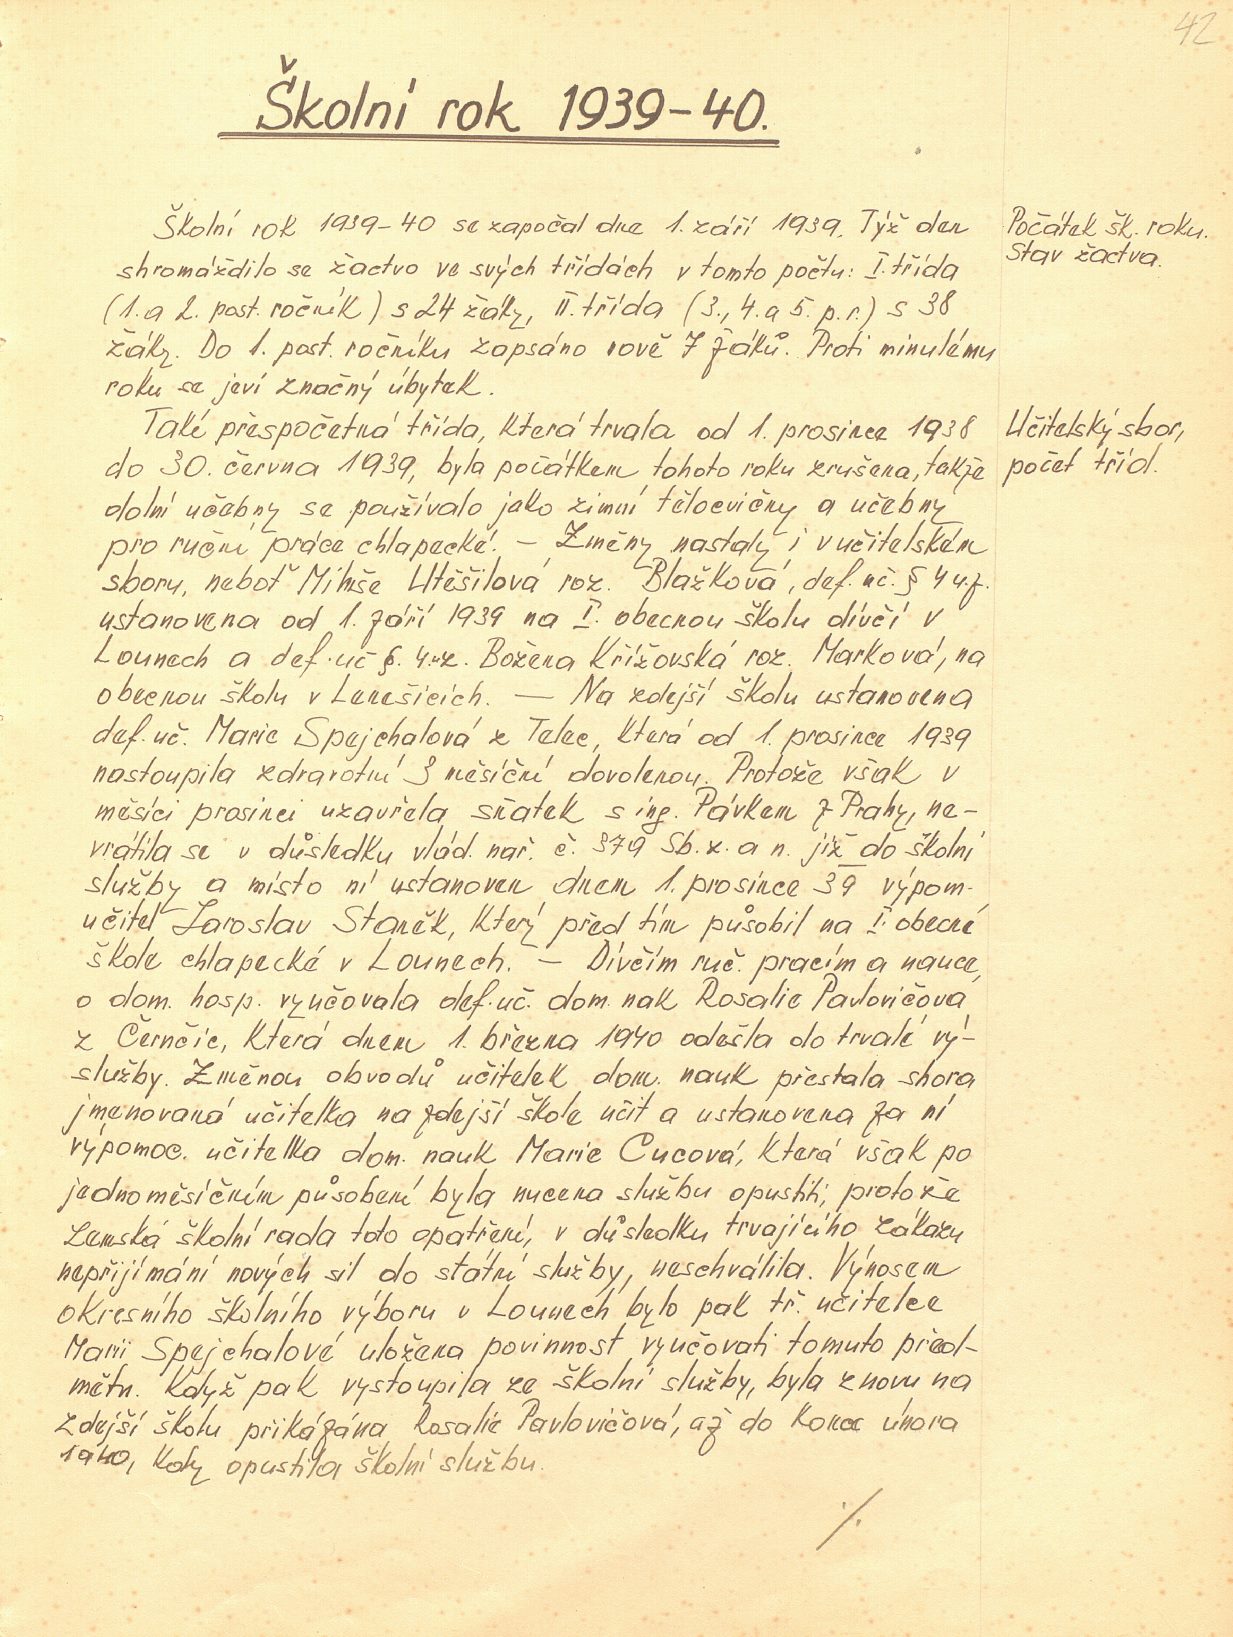 42
Školní rok 1939–40.
Školní rok 1939–40 se započal dne 1. září 1939. Týž den
Počátek šk. roku.
Stav žactva.
shromáždilo se žactvo ve svých třídách v tomto počtu: I. třída
(1. a 2. post. ročník) s 24 žáky, II. třída (3., 4. a 5. p. r.) s 38
žáky. Do 1. post. ročníku zapsáno nově 7 žáků. Proti minulému
roku se jeví značný úbytek.
Také přespočetná třída, která trvala od 1. prosince 1938
Učitelský sbor,
počet tříd.
do 30. června 1939, byla počátkem tohoto roku zrušena, takže
dolní učebny se používalo jako zimní tělocvičny a učebny
pro ruční práce chlapecké. – Změny nastaly i v učitelském
sboru, neboť Utěšilová roz. Blažková, def. uč. § 4 u.z.
ustanovena od 1. září 1939 na I. obecnou školu dívčí v
Lounech a def. uč §. 4. u.z. Božena Křížovská roz. Marková, na
obecnou školu v Lenešicích. — Na zdejší školu ustanovena
def. uč. Marie Spejchalová z Telec, která od 1. prosince 1939
nastoupila zdravotní 3 měsíční dovolenou. Protože však v
měsíci prosinci uzavřela sňatek s ing. Pávkem z Prahy, ne-
vrátila se v důsledku vlád. nař. č. 379 Sb. z. a n. již do školní
služby a místo ní ustanoven dnem 1. prosince 39 výpom.
učitel Jaroslav Staněk, který před tím působil na I. obecné
škole chlapecké v Lounech. – Dívčím ruč. pracím a nauce,
o dom. hosp. vyučovala def. uč. dom. nak Rosalie Pavlovičová
z Černčic, která dnem 1. března 1940 odešla do trvalé vý-
služby. Změnou obvodů učitelek dom. nauk přestala shora
jmenovaná učitelka na zdejší škole učit a ustanovena za ní
výpomoc. učitelka dom. nauk Marie Cucová, která však po
jednoměsíčním působení byla nucena službu opustiti, protože
Zemská školní rada toto opatření, v důsledku trvajícího zákazu
nepřijímání nových sil do státní služby, neschválila. Výnosem
okresního školního výboru v Lounech bylo pak tř. učitelce
Marii Spejchalové uložena povinnost vyučovati tomuto před-
mětu. Když pak vystoupila ze školní služby, byla znovu na
zdejší školu přikázána Rosalie Pavlovičová, až do konce února
1940, kdy opustila školní službu.
./.